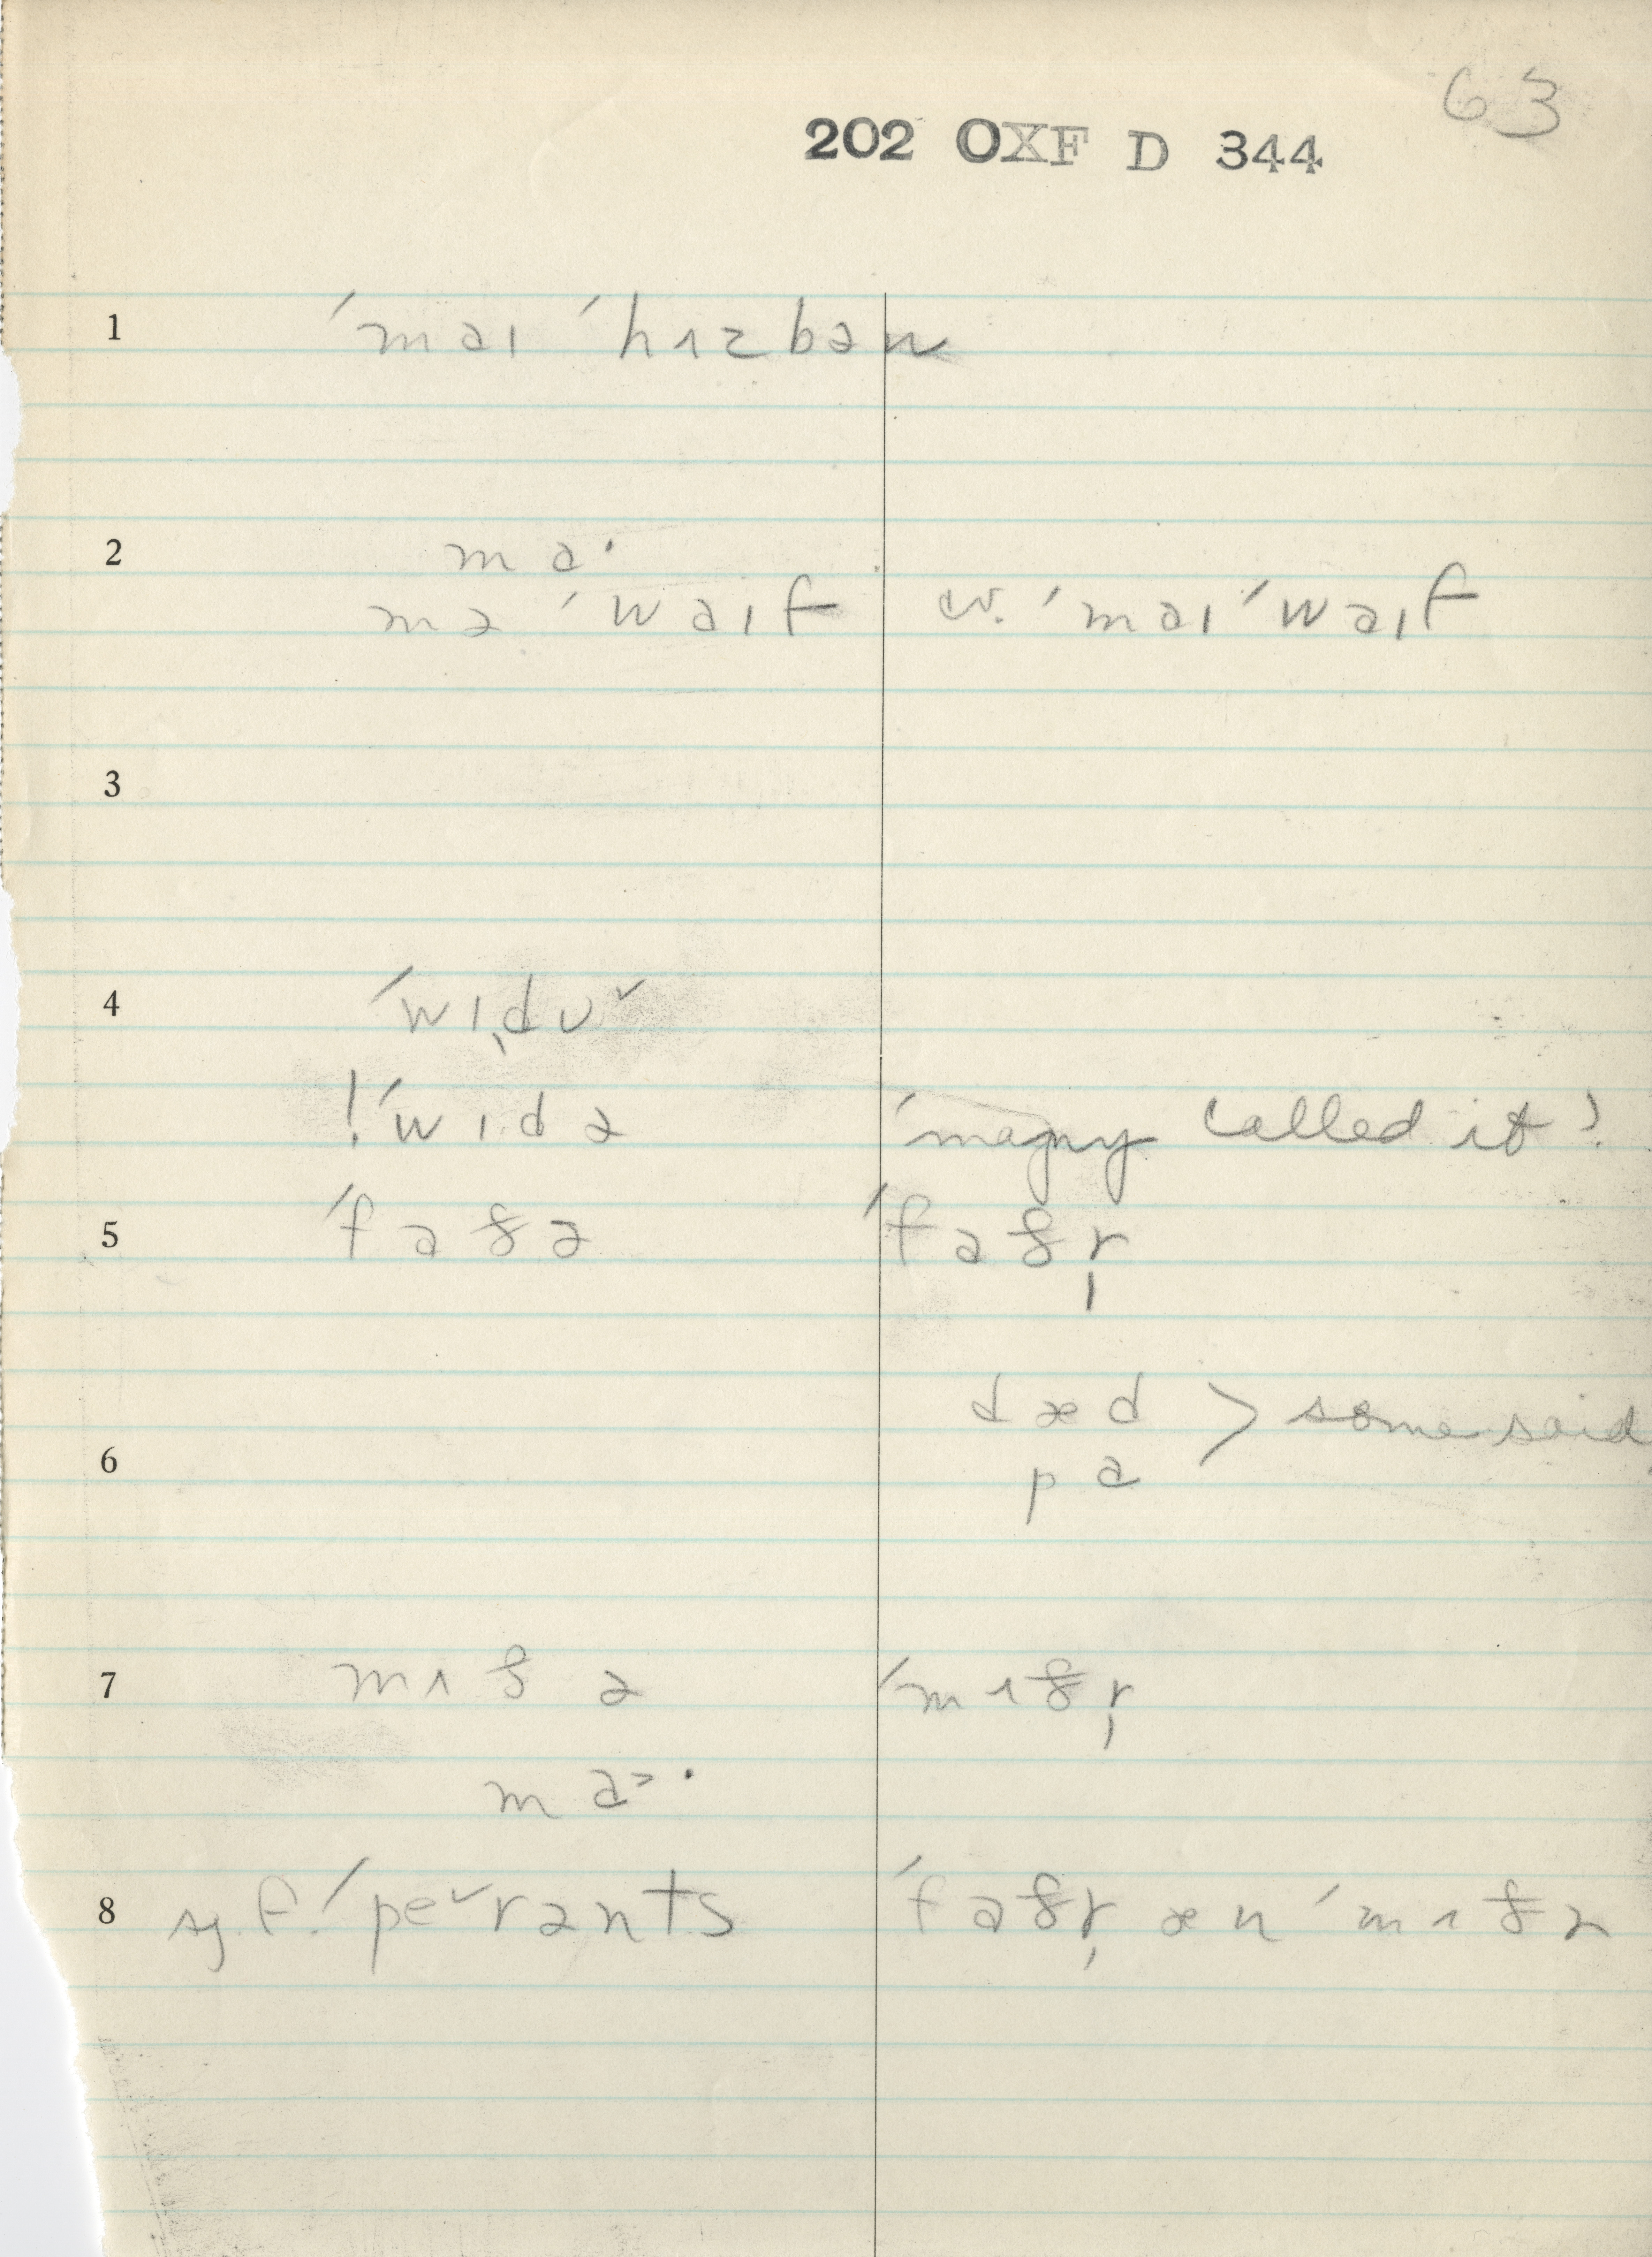 63
202 OXF D 344
1 ˈmaɪ ˈhɪzbən
2 ma·
mə ˈwaɪf w. ˈmaɪ ˈwaɪf
3
4 ˈwɪˌdʊˇ
!ˈwɪdə ˈmany called it!
5 ˈfaðə ˈfaðr̩
dæd > some said
6 pa
7 mɪðə ˈmɪðr̩
ma>·
8 sg. f. ˈpeˇrənts ˈfaðr̩ æn ˈmɪðə